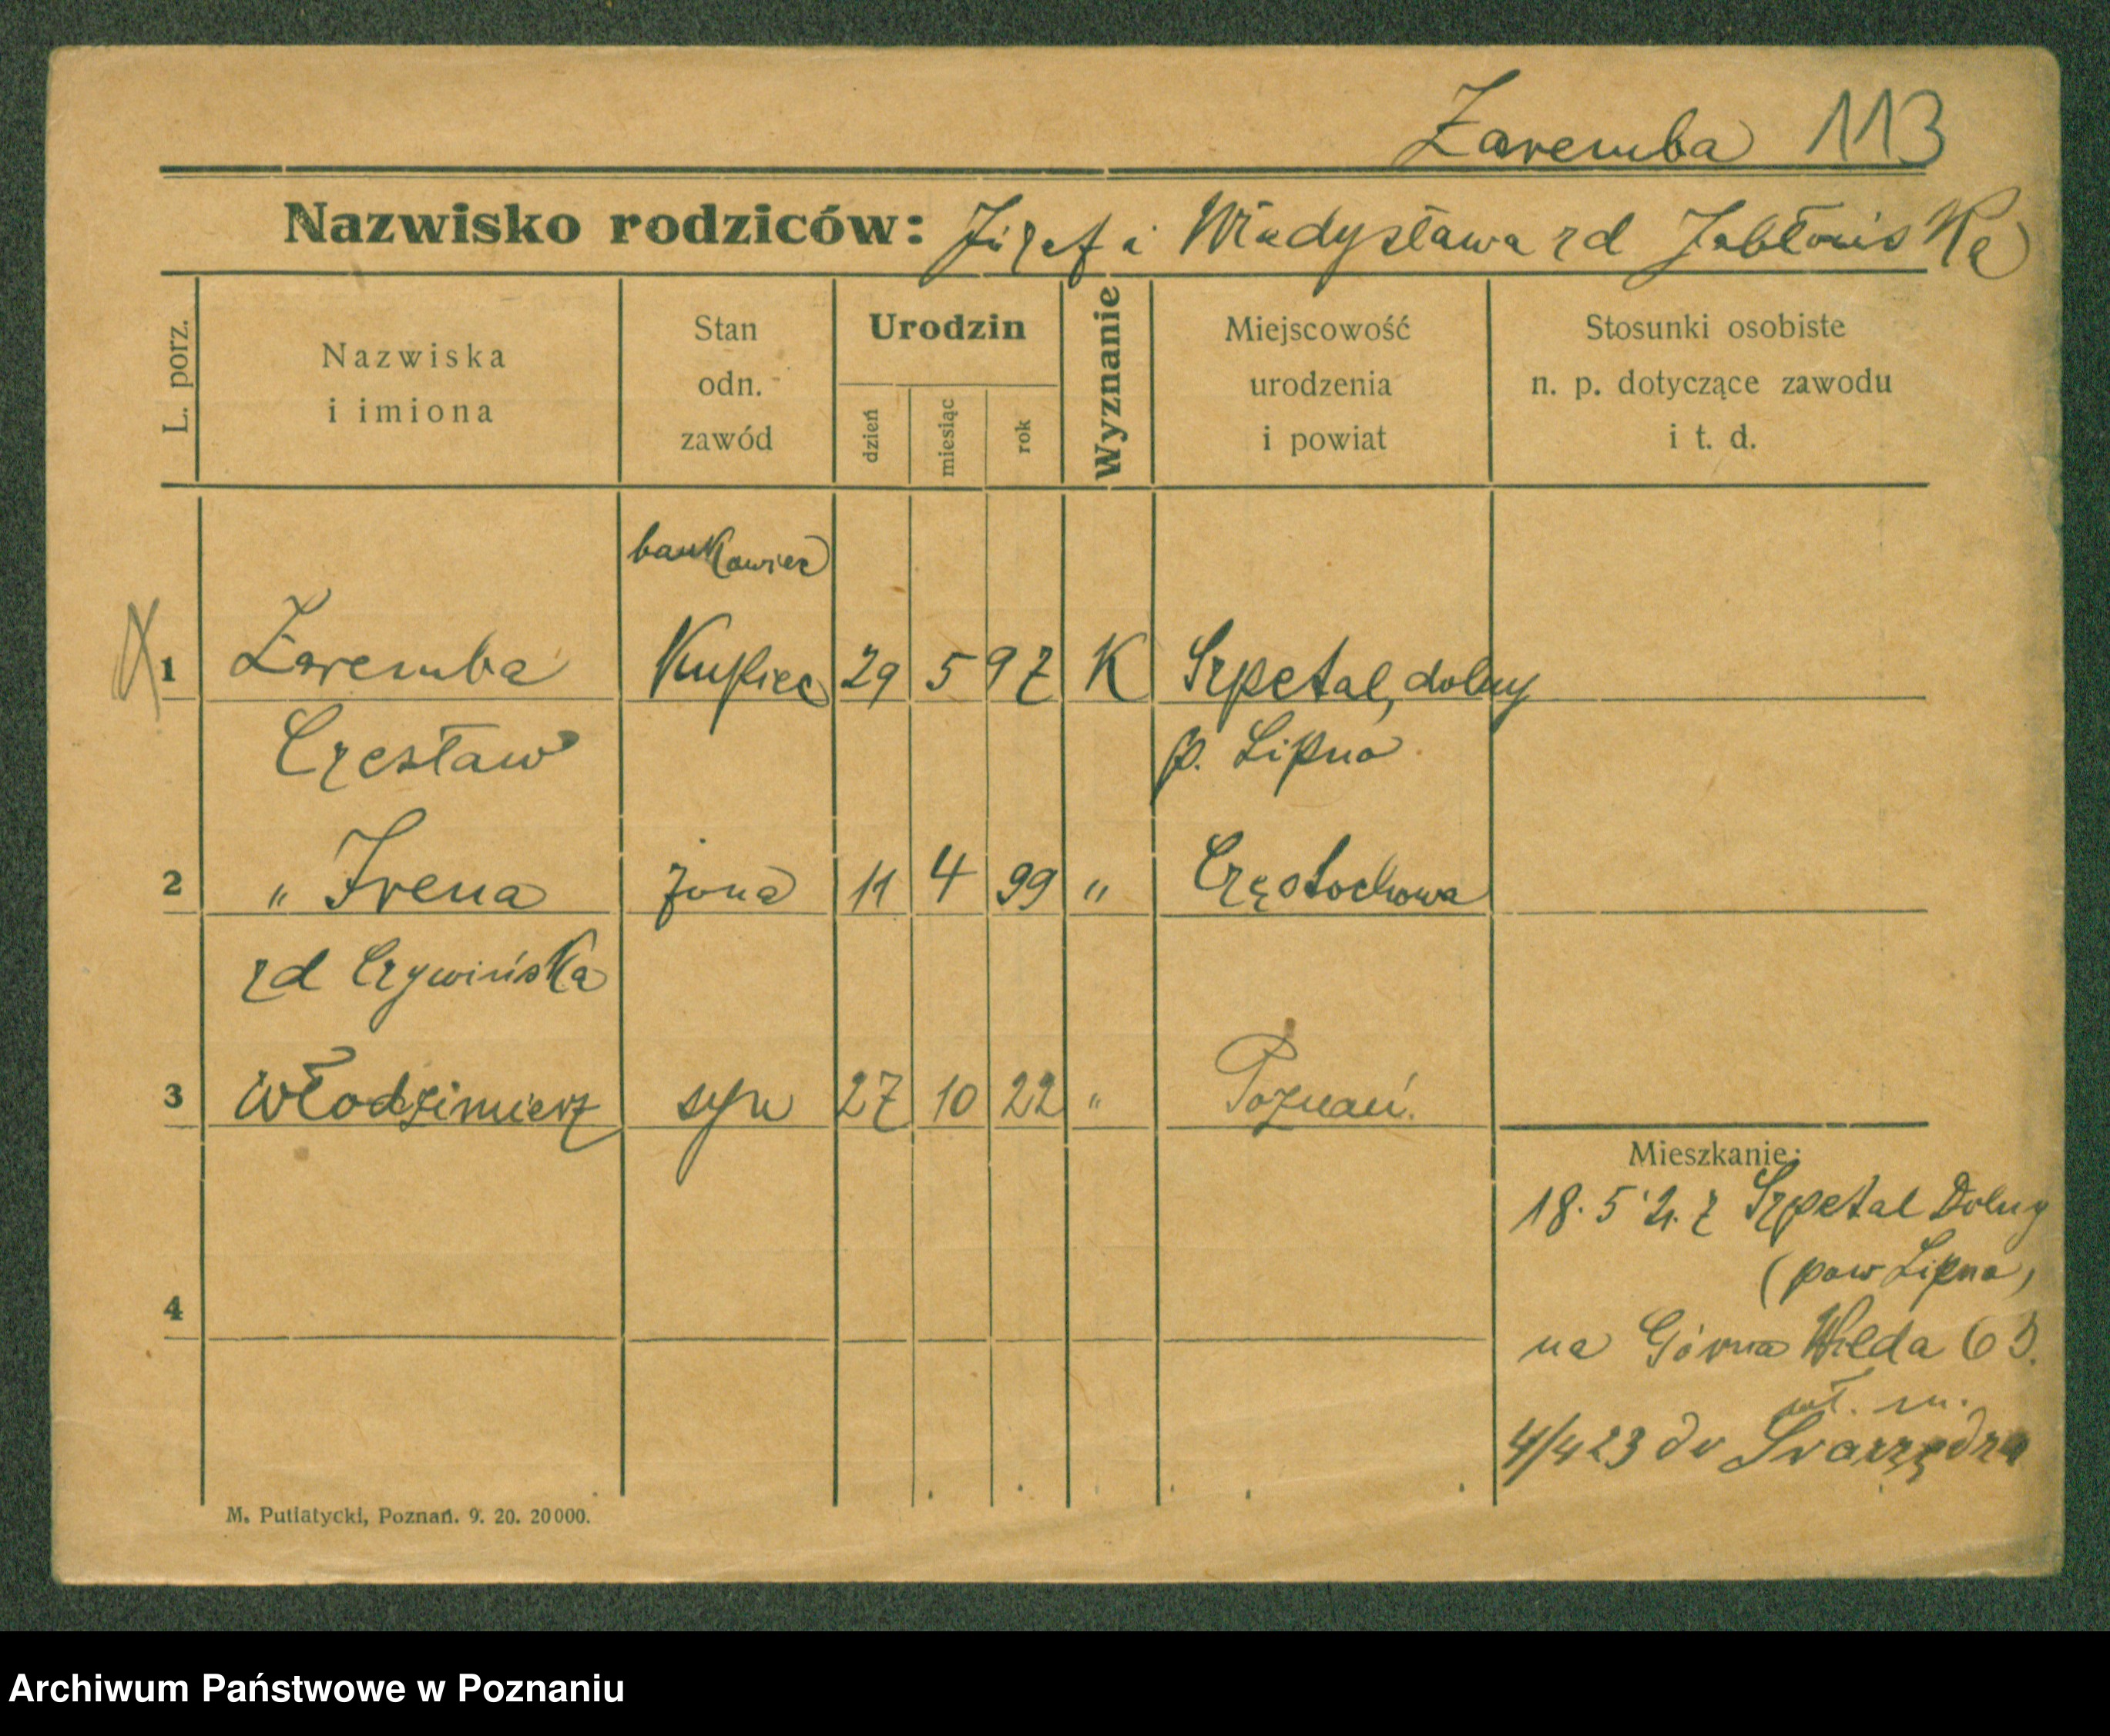 Zaremba 113
Nazwisko rodziców: Józef i Władysława zd Jabłońska
L. porz.
Nazwiska
i imiona
Stan
odn.
zawód
Urodzin
dzień
miesiąc
rok
Wyznanie
Miejscowość
urodzenia
i powiat
Stosunki osobiste
n. p. dotyczące zawodu
i t. d.
bankowiec
1 Zaremba Kupiec 29 5 97 K Szpetal, dolny
Czesław p. Lipno
2 „ Irena żona 11 4 99 „ Częstochowa
zd Czywińska
3 Włodzimierz syn 27 10 22 „ Poznań.
Mieszkanie:
18. 5 21. z Szpetal Dolny
(pow Lipno)
4
na Górna Wilda 63.
wł. m.
4/4 23 do Swarzędza
M. Putiatycki, Poznań. 9. 20. 20000.
Archiwum Państwowe w Poznaniu